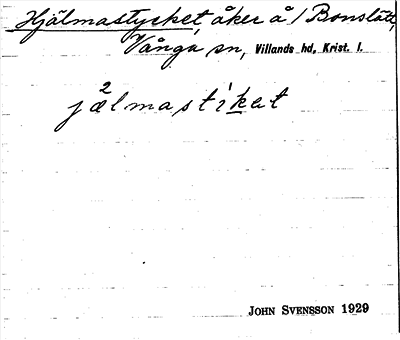 Hjälmastycket, åker å / Bonslätt,
Vånga sn, Villands hd, Krist. l.
jä²lmastiket
JOHN SVENSSON 1929